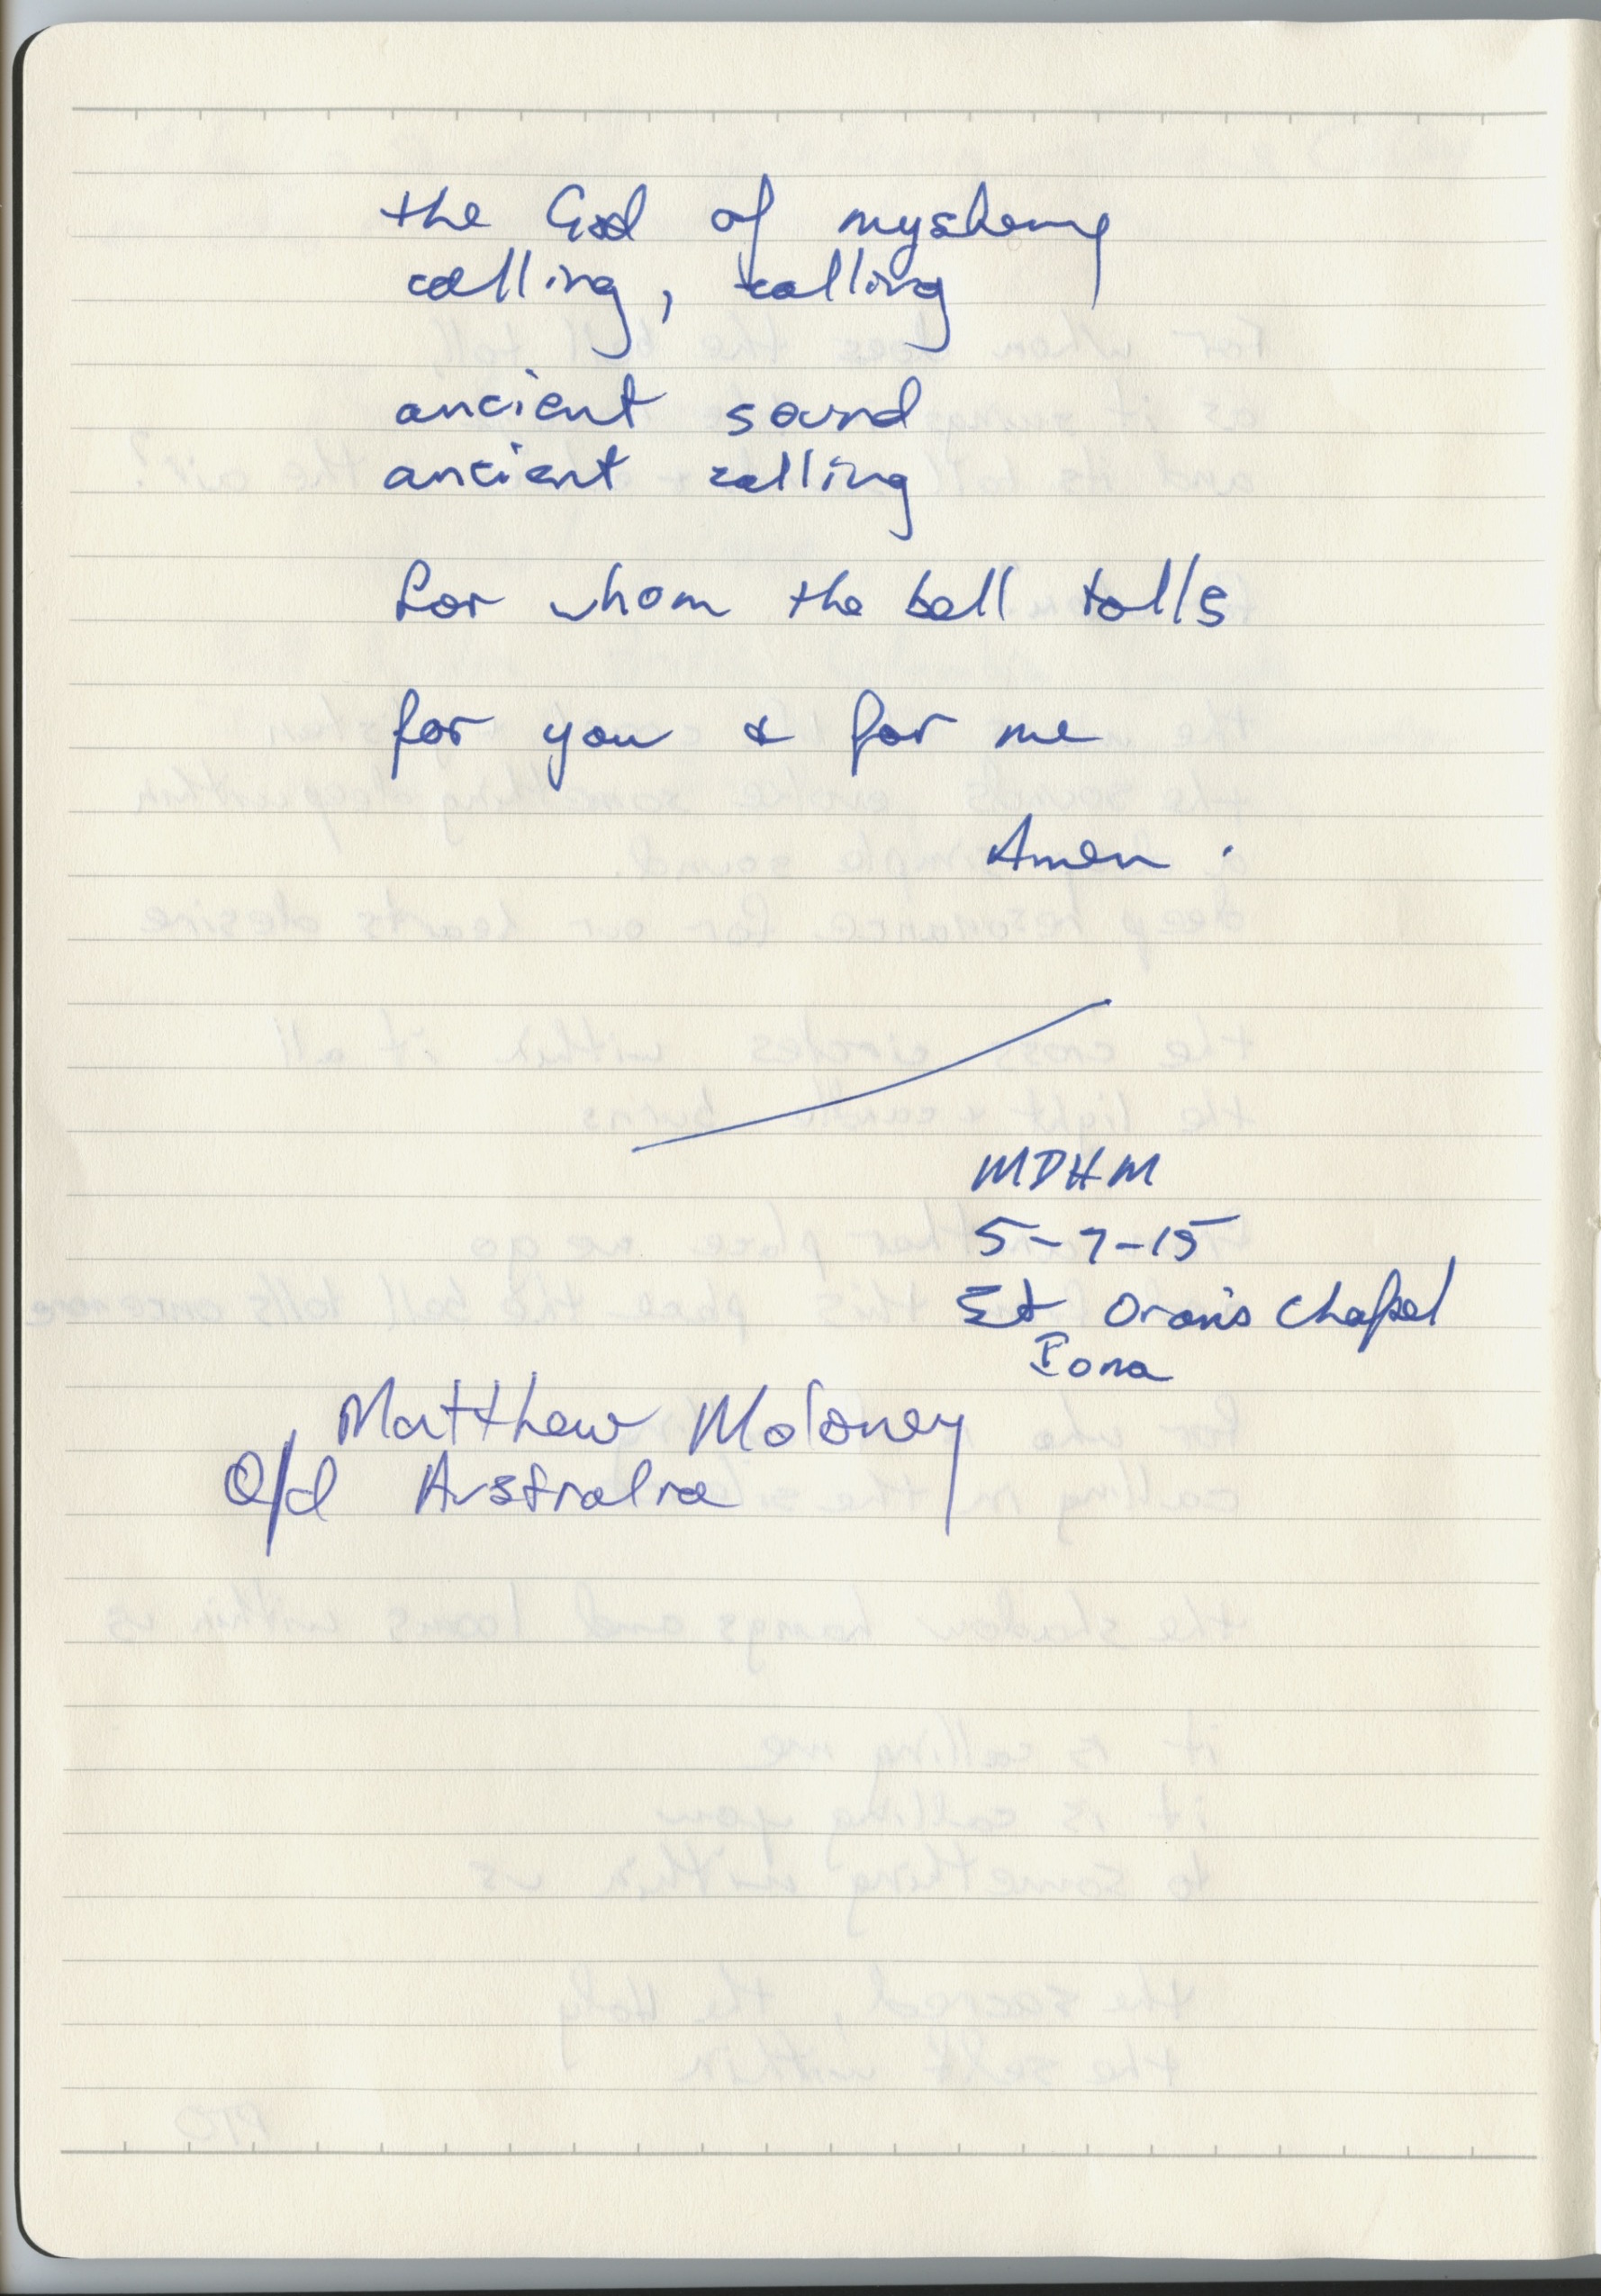 the God of mystery
calling, calling
ancient sound
ancient calling
for whom the bell tolls
for you & for me
Amen.
MDHM
5-7-15
St Oran's Chapel
Iona
Matthew Moloney
Qld Australia